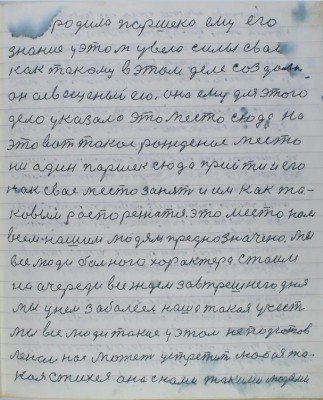 родила паршека ему его
знание у этом увела силы свае
как такому в этом деле создали
он священый его, она ему для этого
дело указало это место сюда на
это вот такое рождение место
ни адин паршек сюда прийти и его
как свае место занять и им как та-
ковым распоряжатся это место нам
всем нашим людям преднозначено, мы
все люди больного характера стоим
на очереди все ждем завтрешнего дня
мы у нем забалеем наша такая участ
мы все люди такие у этом неподготов
лению нас может устретит любая та-
кая стихея она с нами такими людями